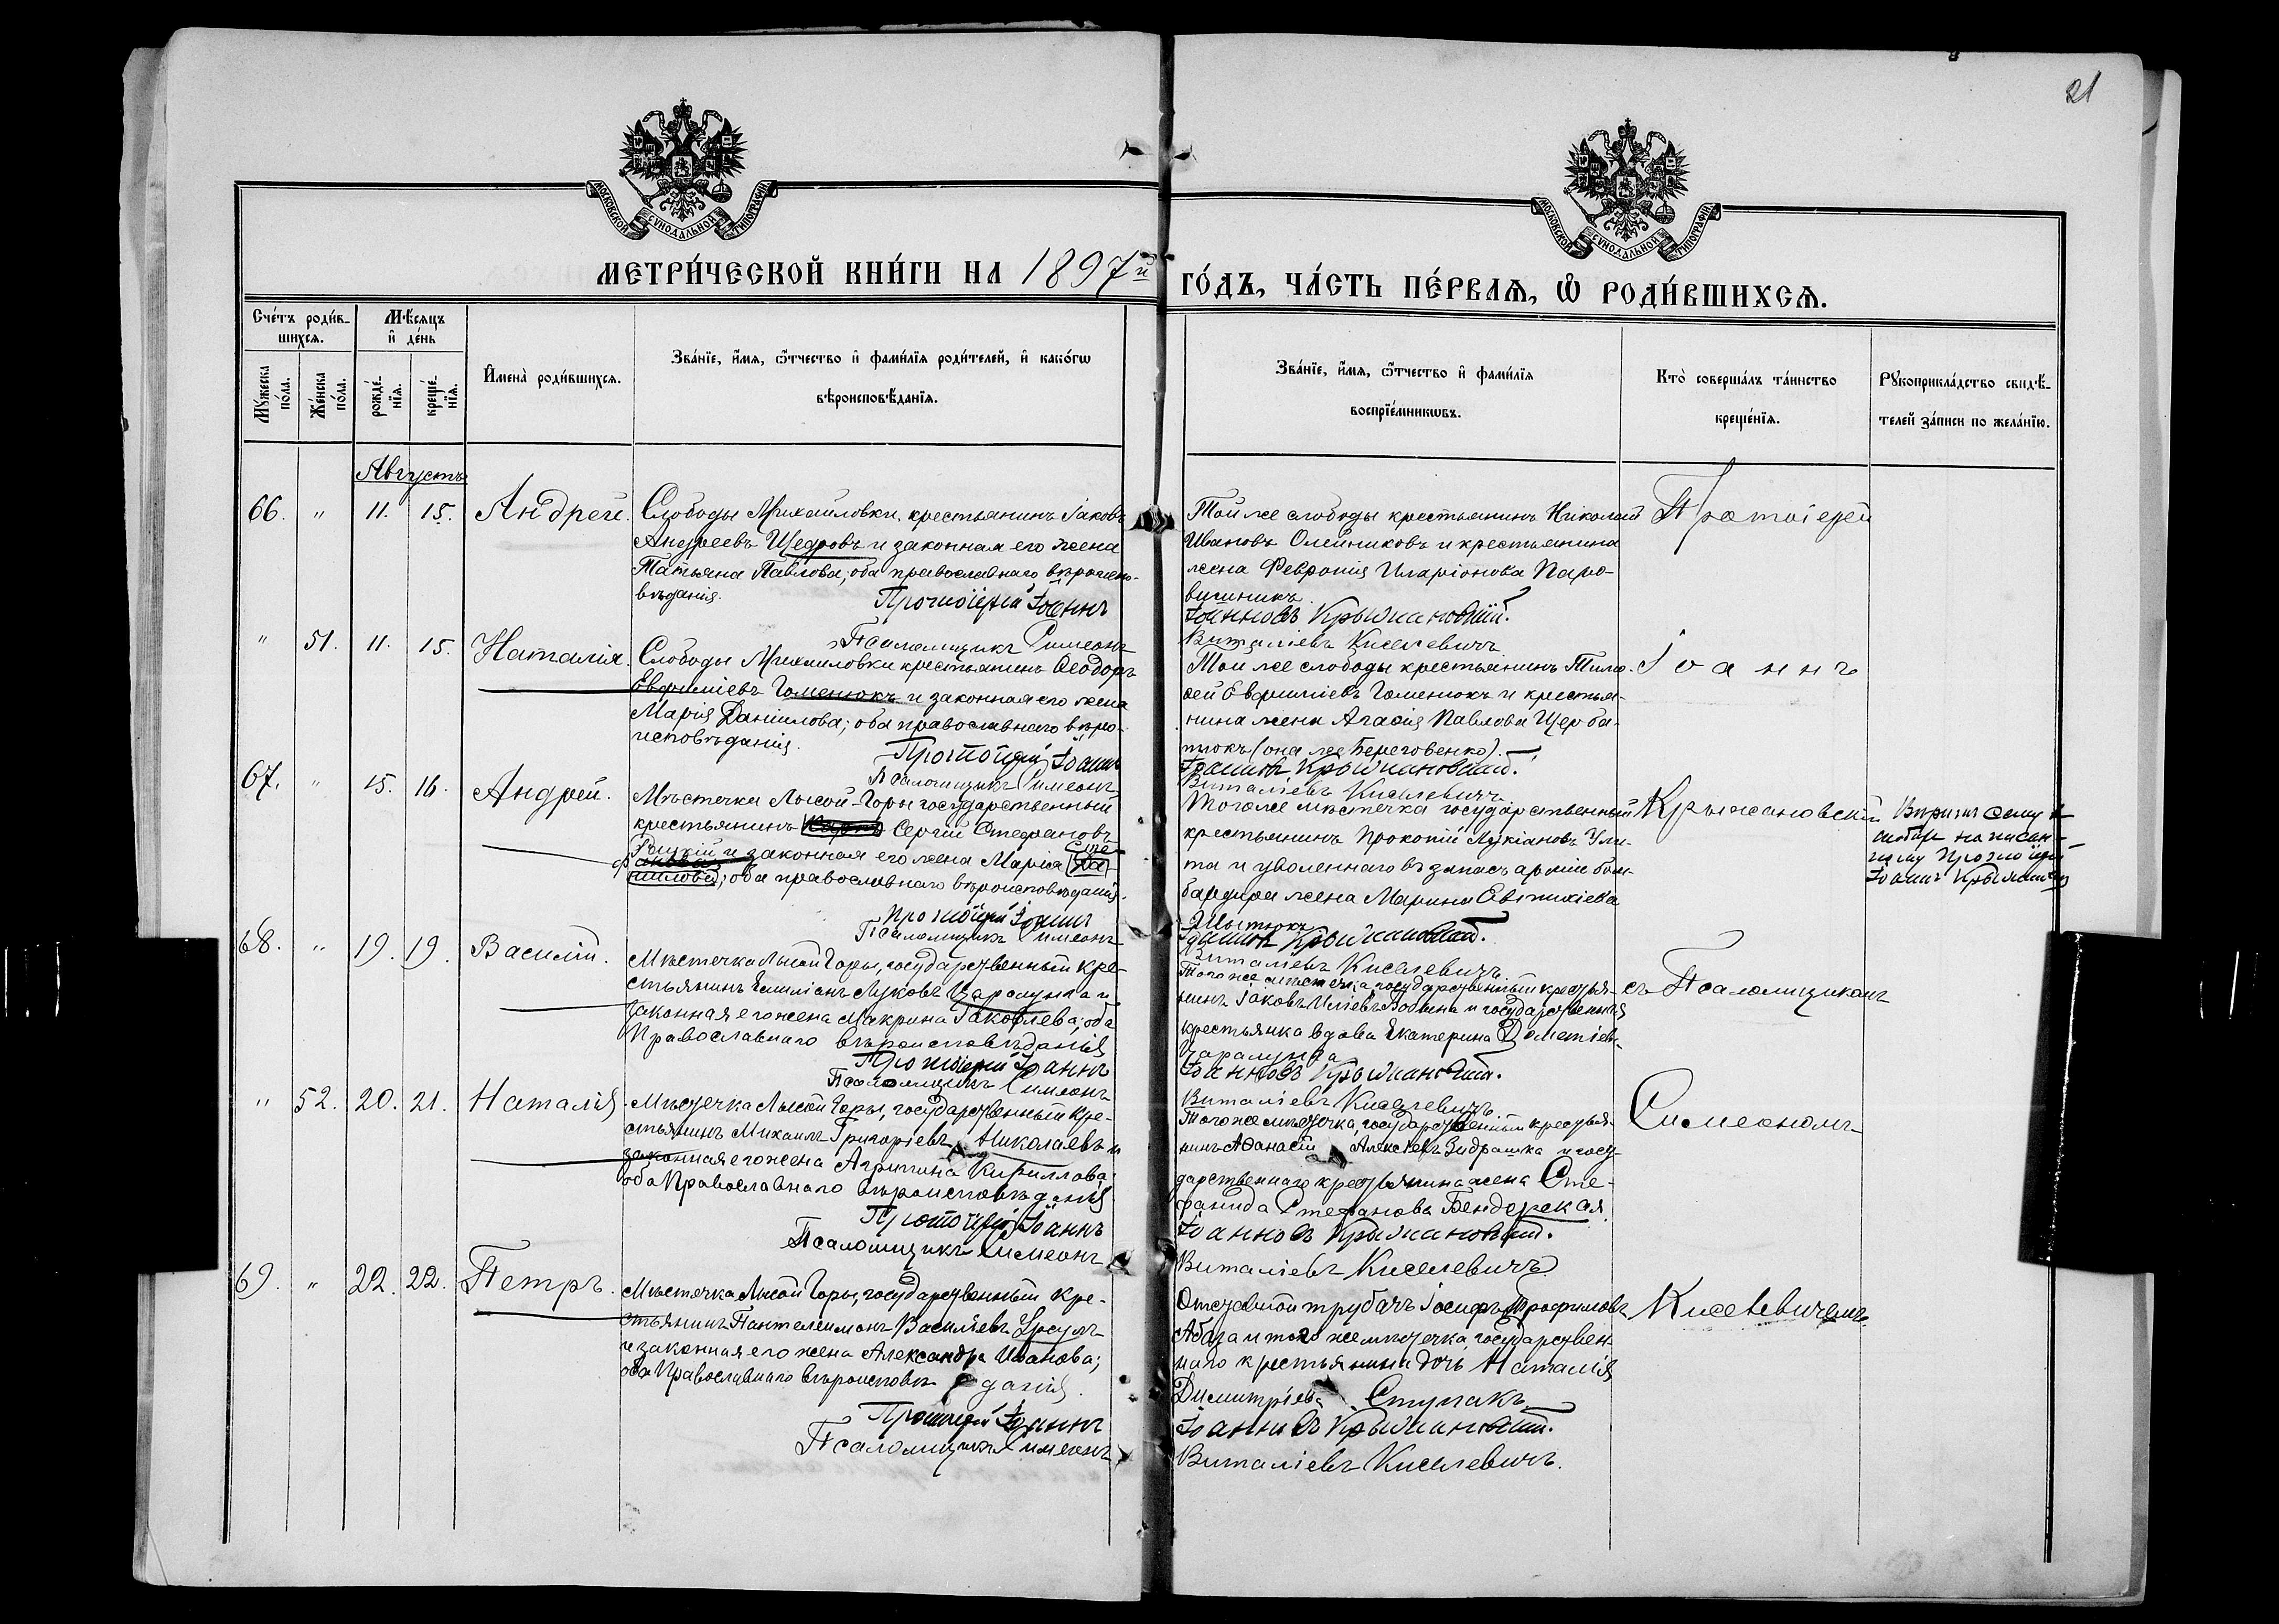 21
МОСКОВСКОЙ СУНОДАЛЬНОЙ ТИПОГРАФІИ
МОСКОВСКОЙ СУНОДАЛЬНОЙ ТИПОГРАФІИ
МЕТРИ́ЧЕСКОЙ КНИ́ГИ НА 1897й
ГО́ДЪ, ЧА́СТЬ ПЕ́РВАѦ, Ѡ҆ РОДИ́ВШИХСѦ.
Сче́тъ роди́в-
шихсѧ.
Мѣ́сяцъ
и҆ де́нь
Мꙋ́жеска
по́ла.
Же́нска
по́ла.
рожде́-
нїѧ.
креще́-
нїѧ.
И҆мена̀ роди́вшихсѧ.
Зва́нїе, и҆́мѧ, ѻ҆́тчество и҆ фами́лїѧ роди́телей, и҆ како́гѡ
вѣроисповѣ́данїѧ.
Зва́нїе, и҆́мѧ, ѻ҆́тчество и҆ фами́лїѧ
воспрїе́мникѡвъ.
Кто̀ соверша́лъ та́инство
креще́нїѧ.
Рꙋкоприкла́дство свидѣ́-
телей за́писи по жела́нїю.
Августъ
66. " 11. 15. Андрей.
Слободы Михайловки, крестьянинъ Іаковъ
Андреевъ Щедровъ и законная его жена
Татьяна Павлова; оба православнаго вѣроиспо-
вѣданія.
Протоіерей Іоаннъ
Псаломщикъ Симеонъ
Той же слободы крестьянинъ Николай
Ивановъ Олейниковъ и крестьянина
жена Февронія Иларіонова
Іоанновъ Крыжановскій.
Виталіевъ Киселевичъ
Протоіерей
" 51. 11. 15. Наталія.
Слободы Михайловки крестьянинъ Ѳеодоръ
Евфиміевъ Гоменюкъ и законная его жена
Марія Даніилова; оба православнаго вѣро-
исповѣданія.
Протоіерей Іоаннъ
Псаломщикъ Симеонъ
Той же слободы крестьянинъ Тимо-
ѳей Евфиміевъ Гоменюкъ и крестья-
нина жена Агаѳія Павлова Щерба-
тюкъ (она же Береговенко).
Іоанновъ Крыжановскій.
Виталіевъ Киселевичъ
Іоаннъ
67. " 15. 16. Андрей.
Мѣстечка Лысой-Горы государственный
крестьянинъ Сергій Стефановъ
и законная его жена Марія
; оба православнаго вѣроисповѣданія.
Протоіерей Іоаннъ
Псаломщикъ Симеонъ
Того же мѣстечка государственный
крестьянинъ Прокопій Лукіановъ Ули-
та и уволеннаго въ запасъ арміи бом-
бардира жена Марина Евтихіева
Іоанновъ Крыжановскій.
Виталіевъ Киселевичъ
Крыжановскій
сему
написан-
ному Протоіерей
Іоаннъ
68. " 19. 19. Василій.
Мѣстечка Лысой Горы, государственный кре-
стьянинъ Емиліанъ Луковъ Царалунга и
законная его жена Макрина Іаковлева; оба
Православнаго вѣроисповѣданія
Протоіерей Іоаннъ
Псаломщикъ Симеонъ
Того же мѣстечка государственный крестья-
нинъ Іаковъ Иліевъ и государственная
крестьянка вдова Екатерина Дометіева
Царалунга
Іоанновъ Крыжановскій.
Виталіевъ Киселевичъ.
съ Псаломщикомъ
" 52. 20. 21. Наталія.
Мѣстечка Лысой Горы, государственный кре-
стьянинъ Михаилъ Григоріевъ Николаевъ и
законная его жена Агрипина Кириллова;
оба Православнаго вѣроисповѣданія
Протоіерей Іоаннъ
Псаломщикъ Симеонъ
Того же мѣстечка, государственный крестья-
нинъ Аѳанасій Алексѣевъ и госу-
дарственнаго крестьянина жена Сте-
фанида Стефанова Бендерская.
Іоанновъ Крыжановскій.
Виталіевъ Киселевичъ.
Симеономъ
69. " 22. 22. Петръ.
Мѣстечка Лысой Горы, государственный кре-
стьянинъ Пантелеимонъ Василіевъ Урсулъ
и законная его жена Александра Иванова;
оба Православнаго вѣроисповѣданія.
Протоіерей Іоаннъ
Псаломщикъ Симеонъ
Отставной трубачъ Іосифъ Трофимовъ
Абаза и того же мѣстечка, государствен-
наго крестьянина дочь Наталія
Димитріева Ступакъ.
Іоанновъ Крыжановскій.
Виталіевъ Киселевичъ.
Киселевичемъ.